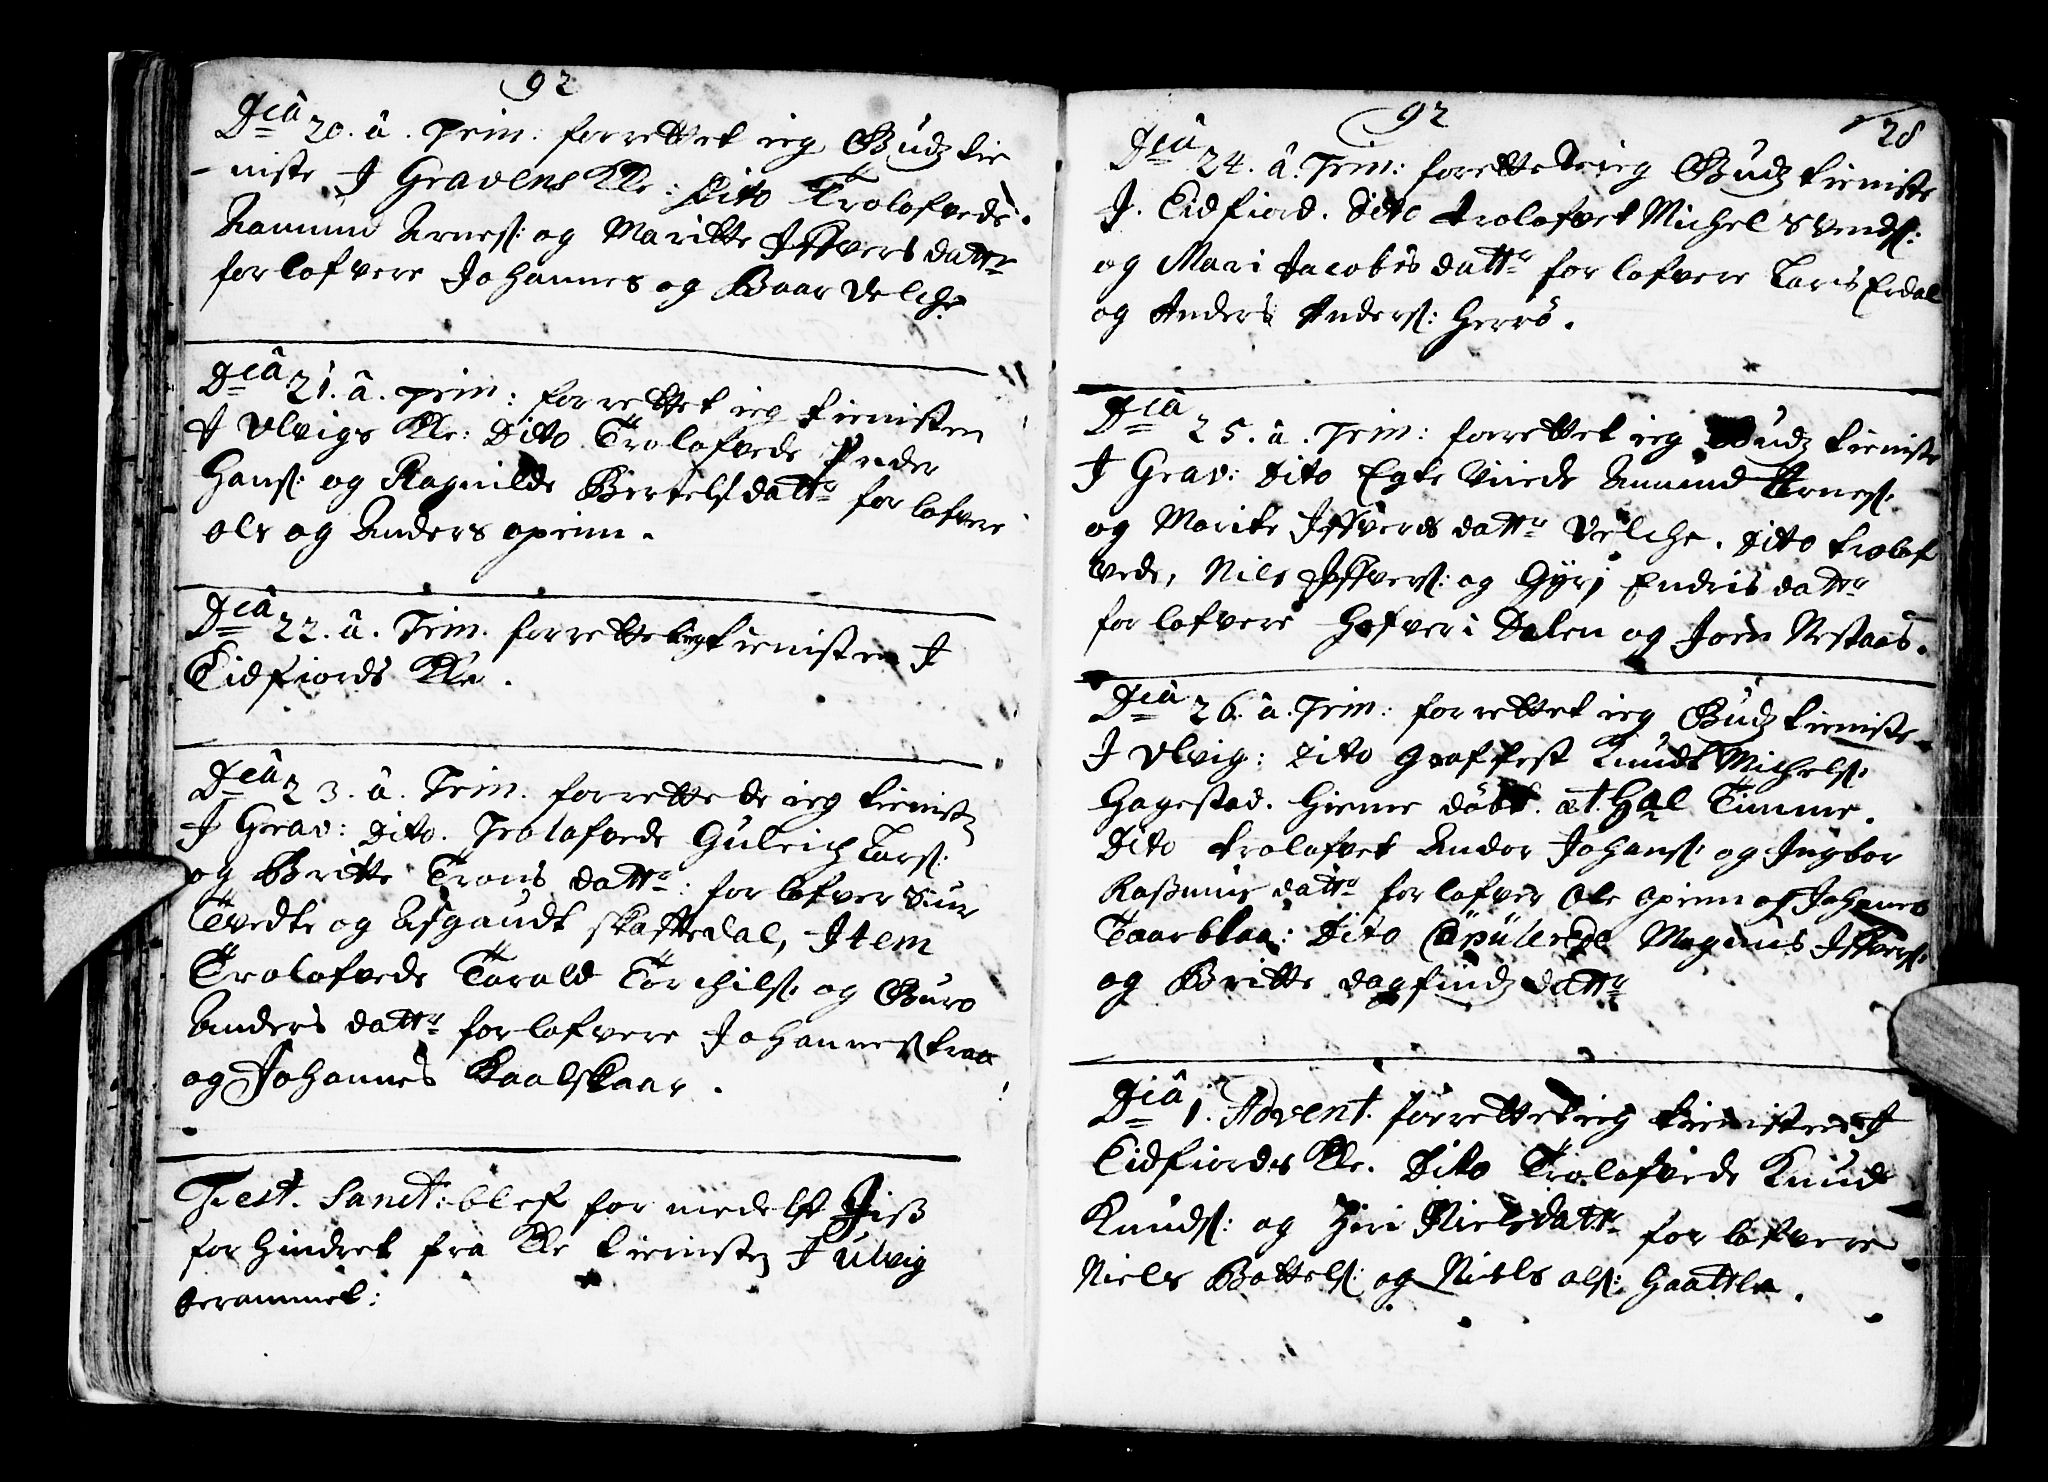 92
Dcã 20. â. Trin: forrettet ieg Gudz tie
-niste I Gravens Kle: Dito Trolofvede.
Aamund Arnes: og Maritte Iffvers dattr
forlofvere Johannes og Baar Velche
Dcã 21. â. Trin: forrettet ieg tienisten
I Ulvigs Kle: Dito Trolofvede Peder
Hans: og Ragnilde Bertels dattr forlofvere
ole og Anders opeim.
Dcã 22. â. Trin. forrettet ieg tienisten I
Eidfiords Kle.
Dcã 23. â. Trin. forrettede ieg tienistn
I Grav: Dito. Trolofvede Guleich Lars:
og Britte Trons dattr: forlofver Siur
Tvedte og Asgaudt skaftedal, Item
Trolofvede Torald Torchils: og Guro
Anders dattr forlofvere Johannes traa
og Johannes Kaalskaar.
Fest. Sanct: blef formedelst Jiss
forhindret fra Kle tienisten I Ulvig
berammet:
92
28
Dcã 24. â. Trin: forettet ieg Gudz tieniste
I. Eidfiord. Dito trolofvet Michel Svends:
og Mari Jacobs dattr forlofvere Lars Erdal
og Anders Anders: Herrö.
Dcã 25. â. Trin: forrettet ieg Gudz tieniste
I Grav: Dito Egte Viede Amund Arnes:
og Marite Iffvers dattr Velche. Dito trolof
vede, Nils Iffvers: og Gyri Endris dattr
forlofvere Hafver i Dalen og Joen Nestaas.
Dcã 26. â. Trin: forrettet ieg Gudz tieniste
I Ulvig: Dito graffest Knudt Michels:
Hagestad. Hieme döbt. æt. Hal Timme.
Dito trolofvet Ander Johans: og Ingbor
Rasmus dattr forlofver Ole opeim og Johanes
Taarblaa: Dito Copulerede Magnus Iffvers:
og Britte dagfindz dattr
Dcã 1. Advent. forrettet ieg tienisten I
Eidfiords Kle. Dito Trolofvede Knud
Knuds: og Siri Niels dattr forlofvere
Niels Bottels: og Niels ols: Haattle.